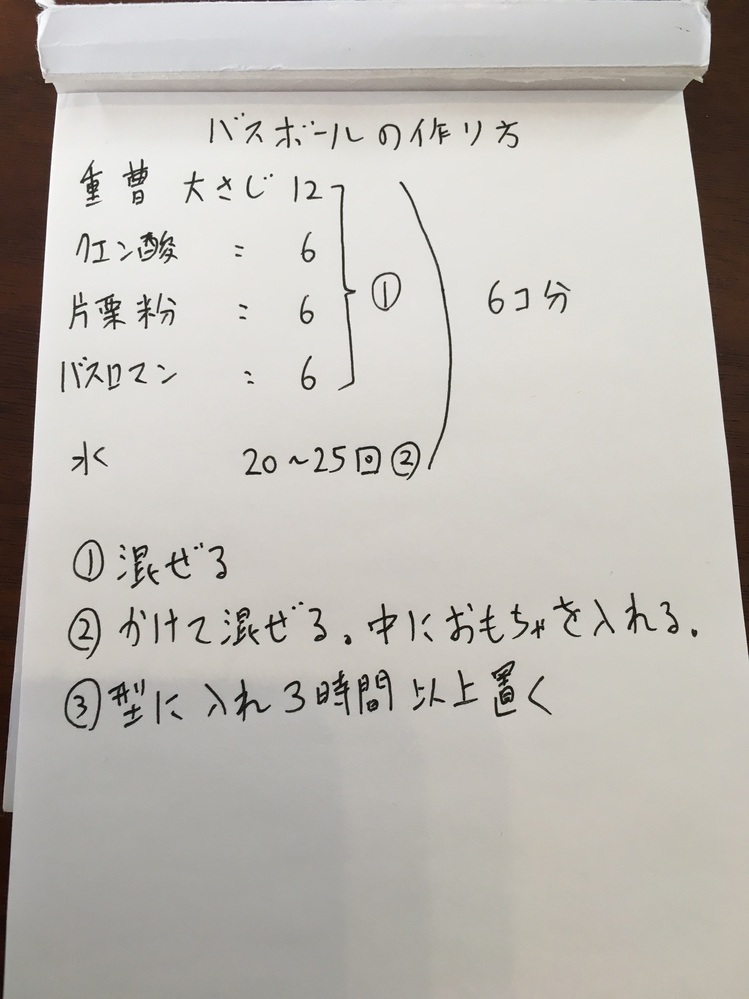 バスボールの作り方
重曹 大さじ 12
クエン酸 〃 6
片栗粉 〃 6
バスロマン 〃 6
①
6コ分
水 20〜25回②
①混ぜる
②かけて混ぜる。中におもちゃを入れる。
③型に入れ3時間以上置く